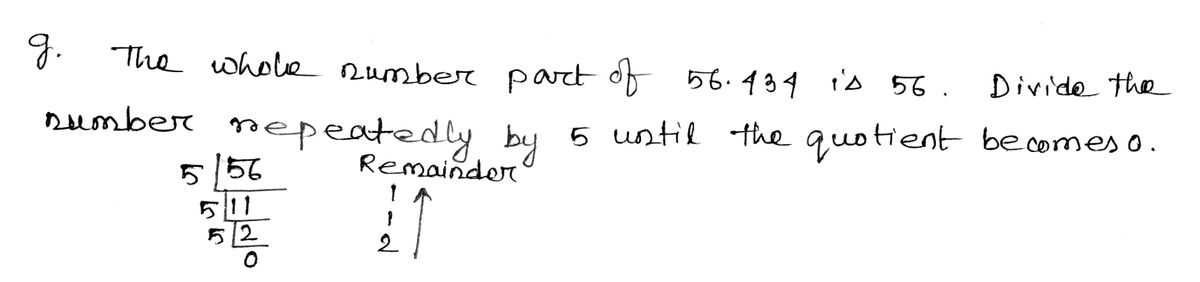 g. The whole number part of 56.434 is 56. Divide the
number repeatedly by 5 until the quotient becomes 0.
5 | 56 Remainder
5 | 11 1
5 | 2 1
0 2